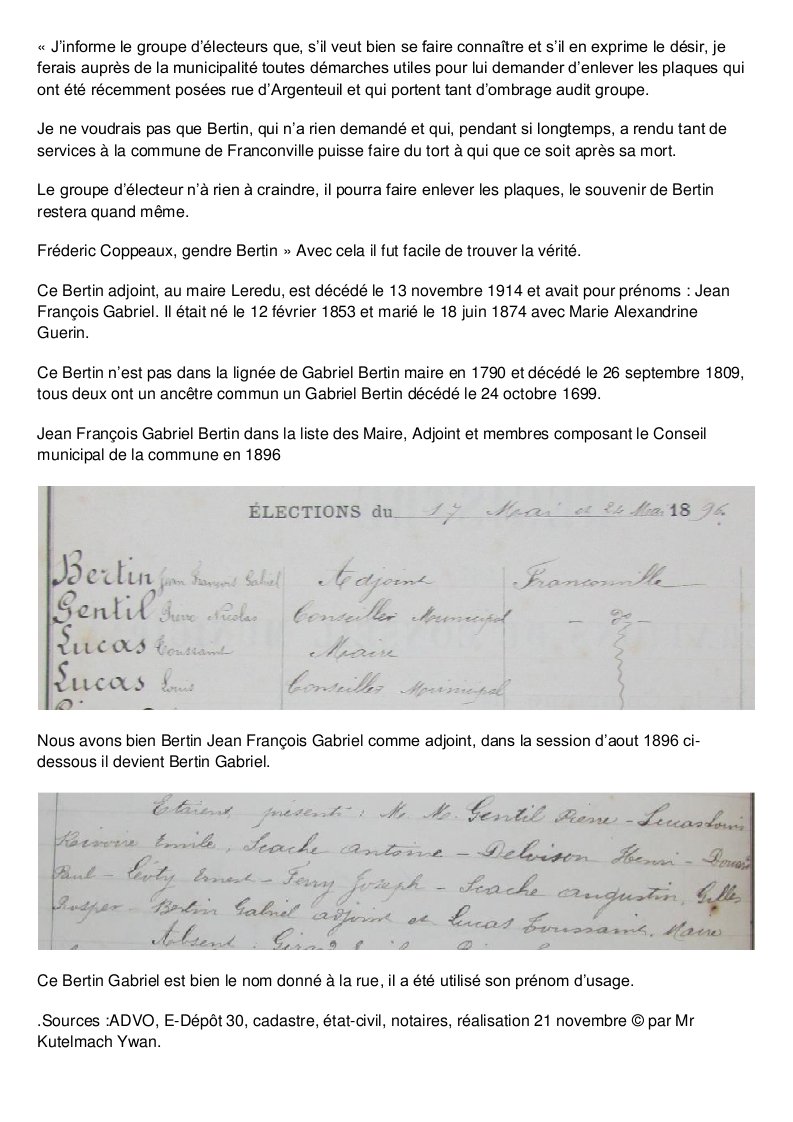 « J’informe le groupe d’électeurs que, s’il veut bien se faire connaître et s’il en exprime le désir, je
ferais auprès de la municipalité toutes démarches utiles pour lui demander d’enlever les plaques qui
ont été récemment posées rue d’Argenteuil et qui portent tant d’ombrage audit groupe.
Je ne voudrais pas que Bertin, qui n’a rien demandé et qui, pendant si longtemps, a rendu tant de
services à la commune de Franconville puisse faire du tort à qui que ce soit après sa mort.
Le groupe d’électeur n’à rien à craindre, il pourra faire enlever les plaques, le souvenir de Bertin
restera quand même.
Fréderic Coppeaux, gendre Bertin » Avec cela il fut facile de trouver la vérité.
Ce Bertin adjoint, au maire Leredu, est décédé le 13 novembre 1914 et avait pour prénoms : Jean
François Gabriel. Il était né le 12 février 1853 et marié le 18 juin 1874 avec Marie Alexandrine
Guerin.
Ce Bertin n’est pas dans la lignée de Gabriel Bertin maire en 1790 et décédé le 26 septembre 1809,
tous deux ont un ancêtre commun un Gabriel Bertin décédé le 24 octobre 1699.
Jean François Gabriel Bertin dans la liste des Maire, Adjoint et membres composant le Conseil
municipal de la commune en 1896
ÉLECTIONS du 17 Mai et 24 Mai 1896.
Bertin Jean François Gabriel Adjoint Franconville
Gentil Nicolas Conseiller Municipal - do -
Lucas Toussaint Maire
Lucas Louis Conseiller Municipal
Nous avons bien Bertin Jean François Gabriel comme adjoint, dans la session d’aout 1896 ci-
dessous il devient Bertin Gabriel.
Etaient présents : M. M. Gentil Pierre - Lucas Louis
Rivoire Emile, Scache Antoine - Deloison Henri -
Paul - Lévty Ernest - Ferry Joseph - Scache Augustin, Gilles
Prosper - Bertin Gabriel adjoint et Lucas Toussaint, Maire
Absent :
Ce Bertin Gabriel est bien le nom donné à la rue, il a été utilisé son prénom d’usage.
.Sources :ADVO, E-Dépôt 30, cadastre, état-civil, notaires, réalisation 21 novembre © par Mr
Kutelmach Ywan.